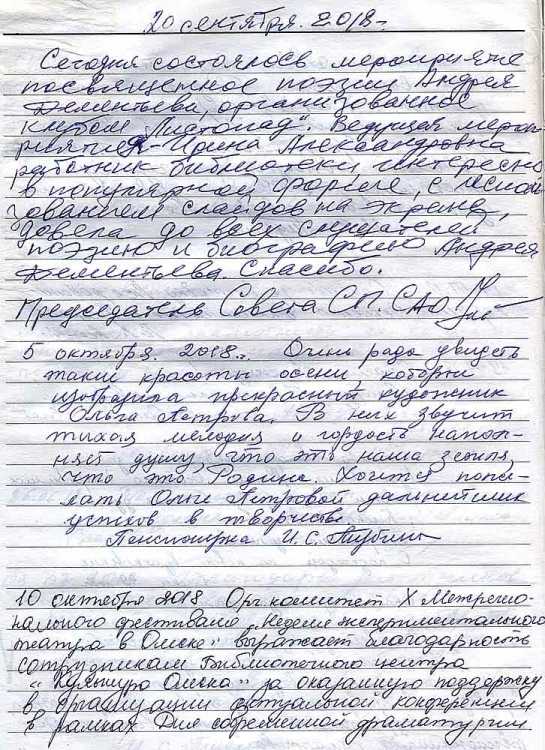 20 сентября. 2018 г.
Сегодня состоялось мероприятие
посвященное поэзии Андрея
Дементьева, организованное
клубом "Листопад". Ведущая мероп-
риятия - Ирина Александровна
работник библиотеки, интересно
в популярной форме, с исполь
зованием слайдов на экране,
довела до всех слушателей
поэзию и биографию Андрея
Дементьева. Спасибо.
Председатель Совета СП. САО
5 октября. 2018 г. Очень рада увидеть
такие красоты осени, которые
изобразила прекрасный художник
Ольга Петрова. В них звучит
тихая мелодия и гордость напол-
няет душу, что это наша земля,
что это Родина. Хочется поже-
лать Ольге Петровой дальнейших
успехов в творчестве.
Пенсионерка И. С.
10 октября 2018 Орг. комитет X Межрегио-
нального фестиваля "Неделя экспериментального
театра в Омске" выражает благодарность
сотрудникам Библиотечного центра
"Культура Омска" за оказанную поддержку
в организации актуальной конференции
в рамках Дня современной драматургии